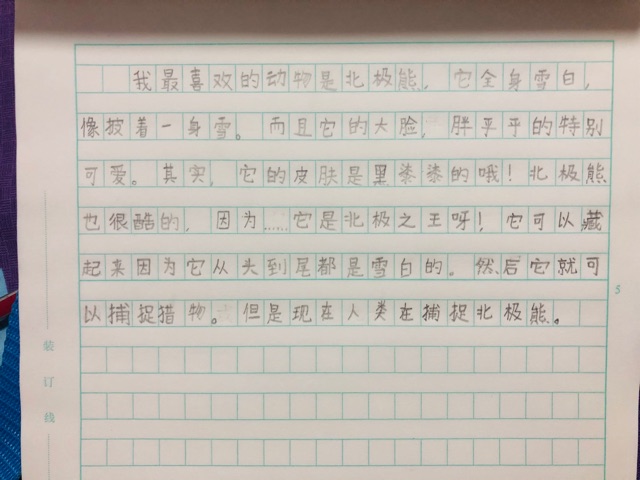 我最喜欢的动物是北极熊，它全身雪白，
像披着一身雪。而且它的大脸，胖乎乎的特别
可爱。其实，它的皮肤是黑漆漆的哦！北极熊
也很酷的，因为……它是北极之王呀！它可以藏
起来因为它从头到尾都是雪白的。然后它就可
以捕捉猎物。但是现在人类在捕捉北极熊。
5
装订线